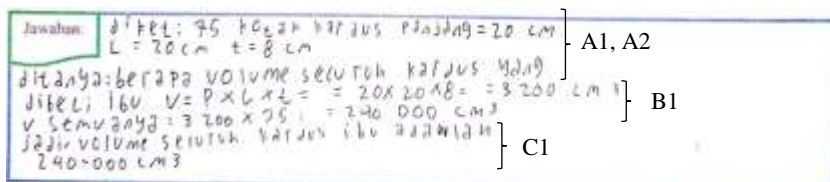 Jawaban: diket: 75 kotak kardus panjang = 20 cm
L = 20 cm t = 8 cm
A1, A2
ditanya: berapa volume seluruh kardus yang
dibeli ibu V = P x L x t = = 20 x 20 x 8 = = 3 200 cm 3
B1
V semuanya: 3 200 x 75 : = 240 000 cm 3
jadi volume seluruh kardus ibu adawlah
C1
240.000 cm 3